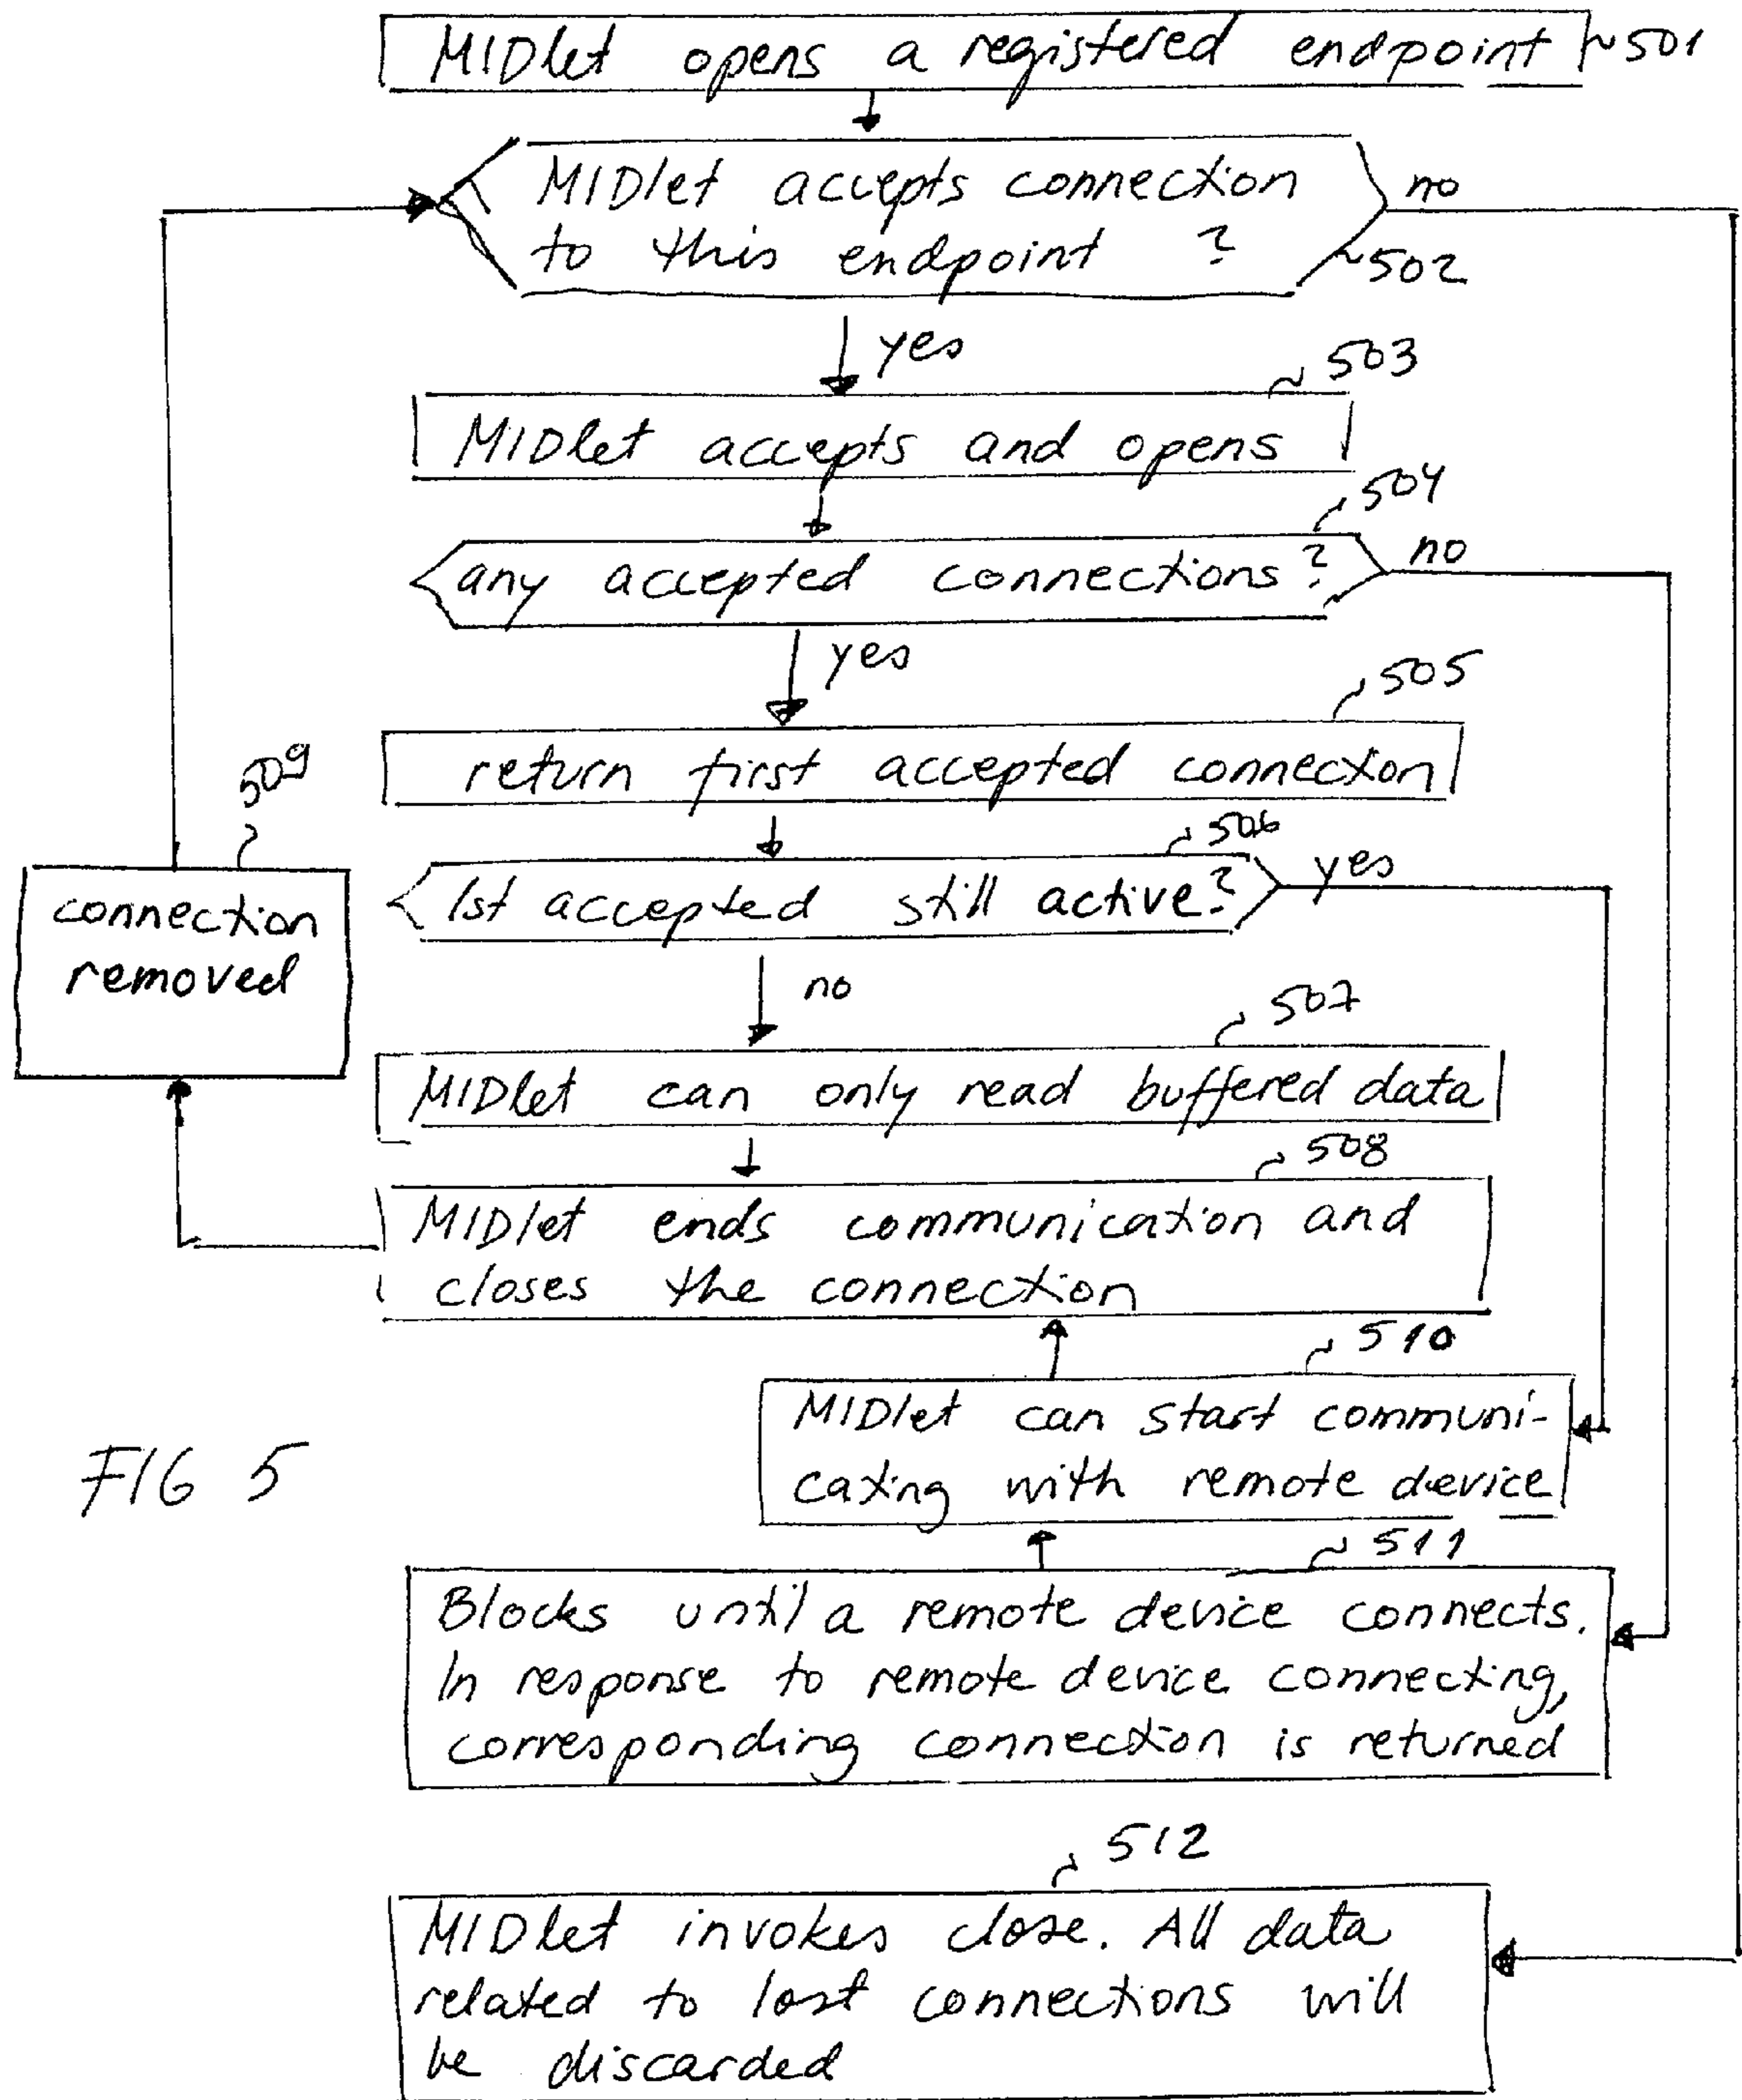 MIDlet opens a registered endpoint 501
MIDlet accepts connection no
to this endpoint ? 502
yes
503
MIDlet accepts and opens
504
any accepted connections? no
yes
505
return first accepted connection
509
506
1st accepted still active? yes
connection
removed
no
507
MIDlet can only read buffered data
508
MIDlet ends communication and
closes the connection
510
MIDlet can start communi-
cating with remote device
FIG 5
511
Blocks until a remote device connects.
In response to remote device connecting,
corresponding connection is returned
512
MIDlet invokes close. All data
related to lost connections will
be discarded